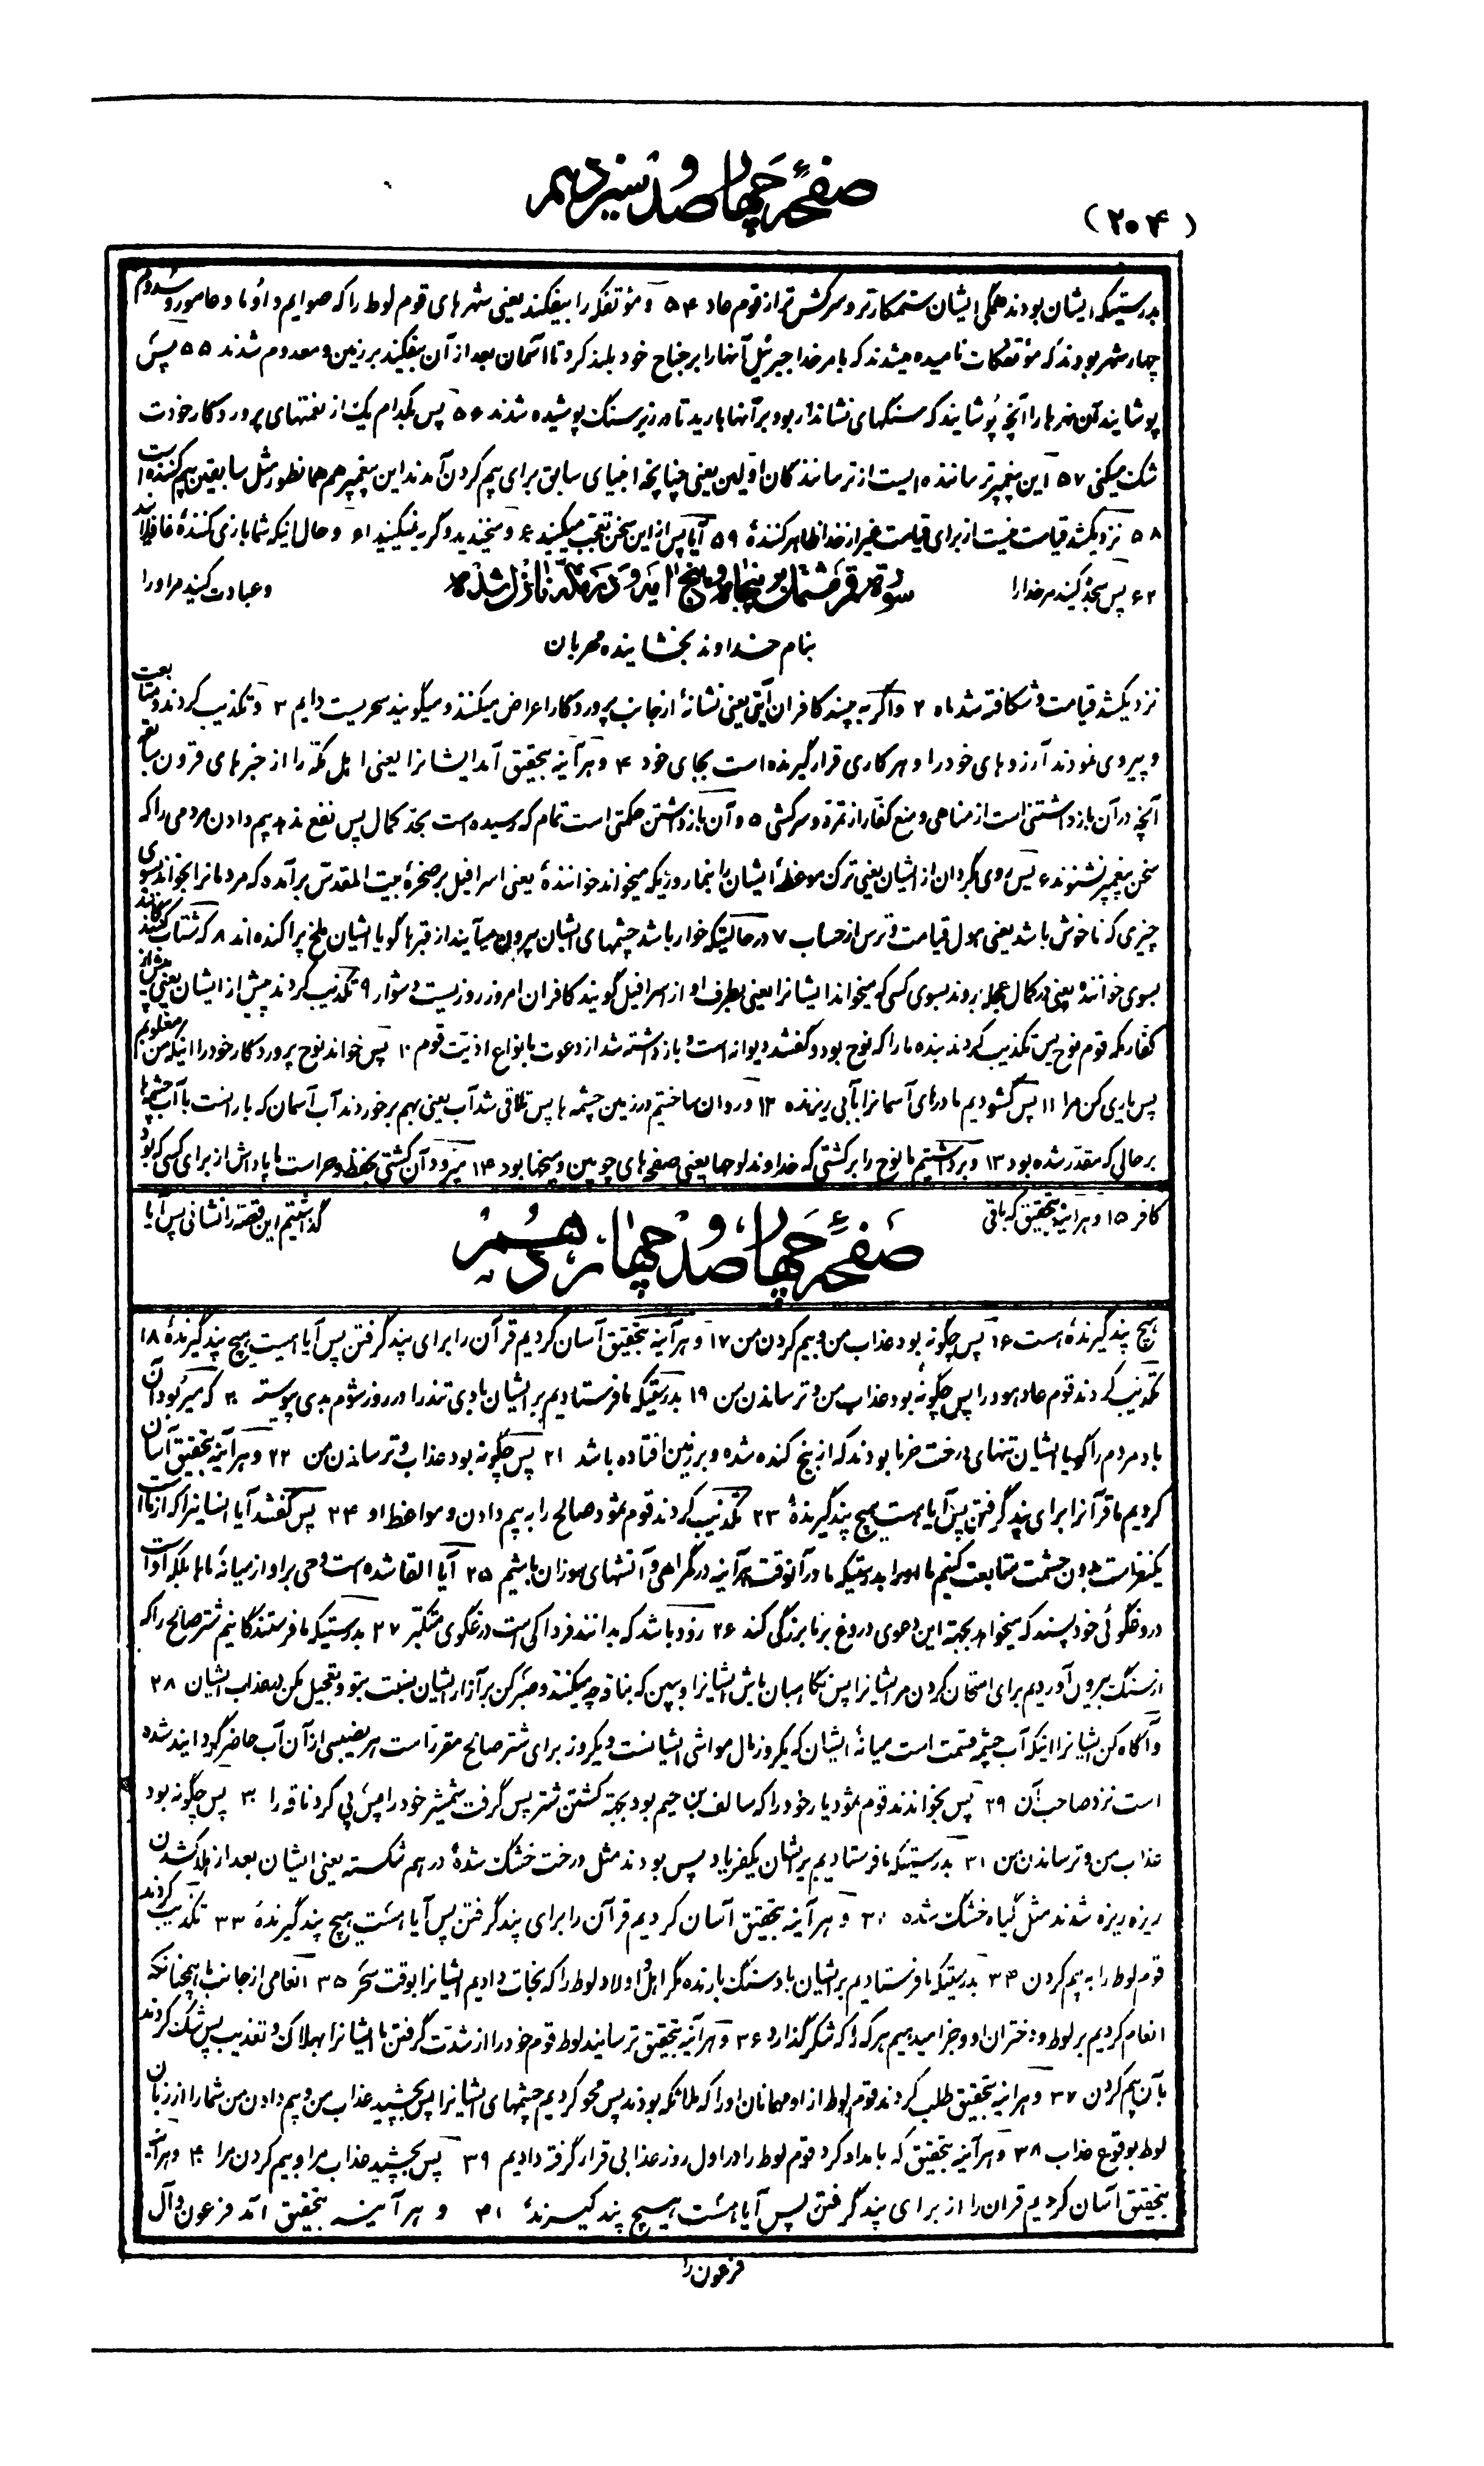 صفحهٔ چهارصد و سیزدهم
(۲۰۴)
بدرستیکه ایشان بودند همگی ایشان ستمکارتر و سرکش تر از قوم عاد ۵۴ و مؤتفکه را بیفکند یعنی شهرهای قوم لوط را که صوایم و اذوما و عامورو و سدوم
چهار شهر بودند که مؤتفکات نامیده میشدند که بامر خدا جبرئیل آنها را بر جناح خود بلند کرد تا آسمان بعد از آن بیفکند بر زمین و معدوم شدند ۵۵ پس
پوشانید آن شهرها را آنچه پوشانید که سنگهای نشاندار بود بر آنها بارید تا در زیر سنگ پوشیده شدند ۵۶ پس بکدام یک از نعمتهای پروردگار خودت
شک میکنی ۵۷ این پیغمبر ترسانندهٔ ایست از ترسانندگان اولین یعنی چنانچه انبیای سابق برای بیم کردن آمدند این پیغمبر هم همانطور مثل سابقین بیم کننده است
۵۸ نزدیکشد قیامت نیست از برای قیامت غیر از خدا ظاهر کنندهٔ ۵۹ آیا پس از این سخن تعجب میکنید ۶۰ و میخندید و گریه نمیکنید ۶۱ و حال اینکه شما بازی کنندهٔ غافلانید
۶۲ پس سجده کنید مر خدا را و عبادت کنید مر او را
سورهٔ قمر مشتمل بر پنجاه و پنج آیه و در مکه نازل شده
بنام خداوند بخشاینده مهربان
نزدیکشد قیامت و شکافته شد ماه ۲ و اگر به بینند کافران آیتی یعنی نشانهٔ از جانب پروردگار اعراض میکنند و میگویند سحریست دایم ۳ و تکذیب کردند و متابعت
و پیروی نمودند آرزوهای خود را و هر کاری قرار گیرنده است بجای خود ۴ و هر آینه بتحقیق آمد ایشانرا یعنی اهل مکه را از خبرهای قرون سابقه
آنچه در آن باز داشتنی است از مناهی و منع کفار از تمرد و سرکشی ۵ و آن باز داشتن حکمتی است تمام که رسیده است بحد کمال پس نفع ندهد بیم دادن مردمی را که
سخن پیغمبر نشنوند ۶ پس روی بگردان از ایشان یعنی ترک موعظهٔ ایشان را بنما روزیکه میخواند خوانندهٔ یعنی اسرافیل بر صخرهٔ بیت المقدس برآمده که مردمانرا بخواند بسوی
چیزی که ناخوش باشد یعنی هول قیامت و ترس از حساب ۷ در حالتیکه خوار باشد چشمهای ایشان بیرون میآیند از قبرها گویا ایشان ملخ پراکنده اند ۸ که شتاب کنند
بسوی خواننده یعنی در کمال عجله بروند بسوی کسی که میخواند ایشانرا یعنی بطرف اواز اسرافیل گویند کافران امروز روزیست دشوار ۹ تکذیب کردند پیش از ایشان یعنی پیش از
کفار مکه قوم نوح پس تکذیب کردند بنده ما را که نوح بود و گفتند دیوانه است و باز داشته شد از دعوت بانواع اذیت قوم ۱۰ پس خواند نوح پروردگار خود را اینکه من مغلوبم
پس یاری کن مرا ۱۱ پس گشودیم ما درهای آسمانرا بآبی ریزنده ۱۲ و روان ساختیم در زمین چشمه ها پس تلاقی شد آب یعنی بهم برخوردند آب آسمان که بارانست با آب چشمه‌ها
بر حالی که مقدر شده بود ۱۳ و برداشتیم ما نوح را بر کشتی که خداوند لوحها یعنی صفحه های چوبین و میخها بود ۱۴ میرود آن کشتی بحفظ و حراست ما پاداش از برای کسی که بود
کافر ۱۵ و هر آینه بتحقیق که باقی گذاشتیم این قصه را نشانی پس آیا
صفحهٔ چهارصد و چهاردهم
هیچ پند گیرندهٔ است ۱۶ پس چگونه بود عذاب من و بیم کردن من ۱۷ و هر آینه بتحقیق آسان کردیم قرآن را برای پند گرفتن پس آیا هست هیچ پند گیرندهٔ ۱۸
تکذیب کردند قوم عاد هود را پس چگونه بود عذاب من و ترساندن من ۱۹ بدرستیکه ما فرستادیم بر ایشان بادی تند را در روز شوم بدی پیوسته ۲۰ که میربود آن
باد مردم را گویا ایشان تنهای درخت خرما بودند که از بیخ کنده شده و بر زمین افتاده باشد ۲۱ پس چگونه بود عذاب و ترساندن من ۲۲ و هر آینه بتحقیق آسان
کردیم ما قرآنرا برای پند گرفتن پس آیا هست هیچ پند گیرندهٔ ۲۳ تکذیب کردند قوم ثمود صالح را به بیم دادن و مواعظ او ۲۴ پس گفتند آیا انسانیرا که از ما است
یکنفر است بدون حشمت متابعت کنیم ما او را بدرستیکه ما در آنوقت هر آینه در گمراهی و آتشهای سوزان باشیم ۲۵ آیا القا شده است وحی بر او از میانهٔ ماها بلکه او است
دروغگوئی خود پسند که میخواهد بجهته این دعوی دروغ بر ما بزرگی کند ۲۶ زود باشد که بدانند فردا کی است دروغگوی متکبر ۲۷ بدرستیکه ما فرستندگانیم شتر صالح را که
از سنگ بیرون آوردیم برای امتحان کردن مر ایشانرا پس نگاهبان باش ایشانرا و ببین که بناقه چه میکنند و صبر کن بر آزار ایشان بنسبت بتو و تعجیل مکن بعذاب ایشان ۲۸
و آگاه کن ایشانرا اینکه آب چشمه قسمت است میانهٔ ایشان که یکروز مال مواشی ایشانست و یکروز برای شتر صالح مقرر است هر نصیبی از آن آب حاضر گردانیده شده
است نزد صاحب آن ۲۹ پس بخواندند قوم ثمود یار خود را که سالف بن حیم بود بجهته کشتن شتر پس گرفت شمشیر خود را پس پی کرد ناقه را ۳۰ پس چگونه بود
عذاب من و ترساندن من ۳۱ بدرستیکه ما فرستادیم بر ایشان یکفریاد پس بودند مثل درخت خشک شدهٔ در هم شکسته یعنی ایشان بعد از هلاکشدن
ریزه ریزه شدند مثل گیاه خشک شده ۳۲ و هر آینه بتحقیق آسان کردیم قرآن را برای پند گرفتن پس آیا هست هیچ پند گیرندهٔ ۳۳ تکذیب کردند
قوم لوط را به بیم کردن ۳۴ بدرستیکه ما فرستادیم بر ایشان باد سنگ بارنده مگر اهل و اولاد لوط را که نجات دادیم ایشانرا بوقت سحر ۳۵ انعامی از جانب ما همچنانکه
انعام کردیم بر لوط و دختران او و جزا میدهیم هر که را که شکر گذارد ۳۶ و هر آینه بتحقیق ترسانید لوط قوم خود را از شدت گرفتن ما ایشانرا بهلاک و تعذیب پس شک کردند
بآن بیم کردن ۳۷ و هر آینه بتحقیق طلب کردند قوم لوط از او مهمانان او را که ملائکه بودند پس محو کردیم چشمهای ایشانرا پس بچشید عذاب من و بیم دادن من شما را از زبان
لوط بوقوع عذاب ۳۸ و هر آینه بتحقیق که بامداد کرد قوم لوط را در اول روز عذابی قرار گرفته دادیم ۳۹ پس بچشید عذاب مرا و بیم کردن مرا ۴۰ و هر آینه
بتحقیق آسان کردیم قران را از برای پند گرفتن پس آیا هست هیچ پند گیرندهٔ ۴۱ و هر آینه بتحقیق آمد فرعون و آل
فرعون را